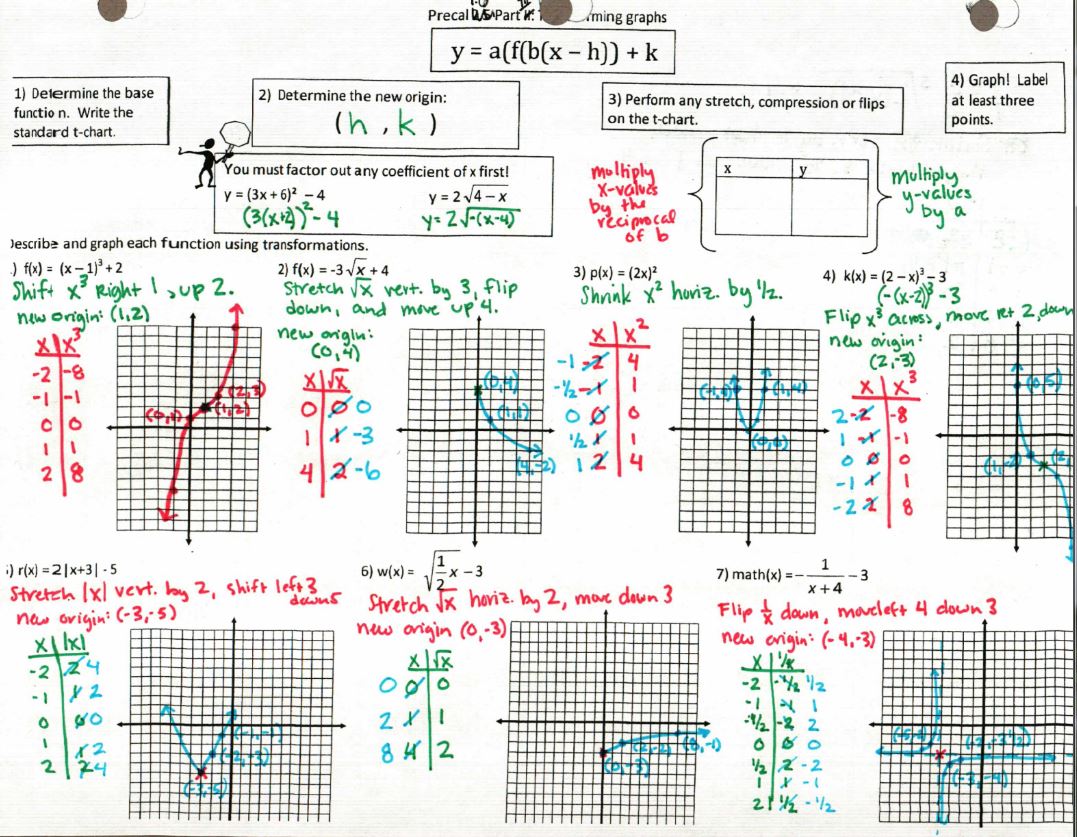 Precal
Part
rming graphs
y = a(f(b(x – h)) + k
1) Determine the base
functio n. Write the
standard t-chart.
2) Determine the new origin:
(h , k )
3) Perform any stretch, compression or flips
on the t-chart.
4) Graph! Label
at least three
points.
You must factor out any coefficient of x first!
y = (3x + 6)² – 4
y = 2√4 – x
(3(x+2))² - 4
y= 2√-(x-4)
multiply
x-values
by the
reciprocal
of b
x y
multiply
y-values
by a
escribe and graph each function using transformations.
.) f(x) = (x – 1)³ + 2
Shift x³ Right 1, up 2.
new origin: (1,2)
x x³
-2 -8
-1 -1
0 0
1 1
2 8
(0,1)
(2,3)
(1,2)
2) f(x) = -3√x + 4
Stretch √x vert. by 3, flip
down, and move up 4.
new origin:
(0,4)
x √x
0 0 0
1 1 -3
4 2 -6
(0,4)
(1,1)
(4,-2)
3) p(x) = (2x)²
Shrink x² horiz. by ½.
x x²
-1 -2 4
-½ -1 1
0 0 0
½ 1 1
1 2 4
(-1,4)
(1,4)
(0,0)
4) k(x) = (2 – x)³ – 3
(-(x-2))³ - 3
Flip x³ across, move rt 2, down
new origin:
(2,-3)
x x³
2 -2 -8
1 -1 -1
0 0 0
-1 1 1
-2 2 8
(0,5)
(1,-2)
(2,
) r(x) = 2|x+3| - 5
Stretch |x| vert. by 2, shift left 3
down 5
new origin: (-3,-5)
x |x|
-2 2 4
-1 1 2
0 0 0
1 1 2
2 2 4
(-1,-1)
(-2,-3)
(-3,-5)
6) w(x) = √1/2 x – 3
Stretch √x horiz. by 2, move down 3
new origin (0,-3)
x √x
0 0 0
2 1 1
8 4 2
(0,-3)
(2,-2)
(8,-1)
7) math(x) = – 1/x + 4 – 3
Flip 1/x down, move left 4 down 3
new origin: (-4,-3)
x 1/x
-2 -½ ½
-1 -1 1
-½ -2 2
0 0 0
½ 2 -2
1 1 -1
2 ½ -½
(-3,-4)